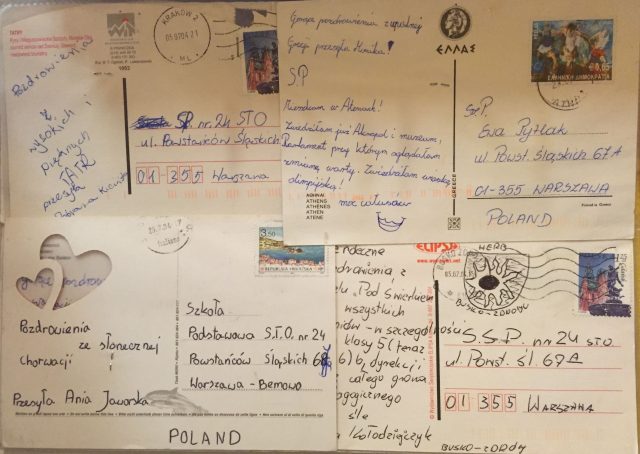 TATRY
1992
KRAKÓW 2
05.07.04.21
ML
Pozdrowienia
z
wysokich i
pięknych
TATR
przesyła
SP. nr. 24 STO
ul. Powstańców Śląskich
01-355 Warszawa
Gorące pozdrowienia z upalnej
Grecji przesyła
S.P
Mieszkam w Atenach!
Zwiedzałam już Akropol i muzeum,
Parlament przy którym oglądałam
zmianę warty. Zwiedzałam wioskę
olimpijską!
moc całusów
ATHEN
ATHENES
ATHENS
ATHEN
ATENE
ΕΛΛΑΣ
GREECE
€0,65
ΕΛΛΗΝΙΚΗ ΔΗΜΟΚΡΑΤΙΑ
Sz.P.
Ewa Pytlak
ul. Powst. Śląskich 67A
01-355 WARSZAWA
POLAND
Printed in Greece
3,50
REPUBLIKA HRVATSKA
Pozdrowienia
ze słonecznej
Chorwacji i
Przesyła Ania Jaworska
Szkoła
Podstawowa S.T.O. nr 24
Powstańców Śląskich 67
Warszawa - Bemowo
POLAND
ELIPSA
HERB
BUSKO-ZDROJU
05.07.04
1,25
"Pod Świerkiem"
wszystkich
w szczególności
klasy 5 (teraz
6) b, dyrekcji i
całego grona
pedagogicznego
śle
Kołodziejczyk
S.S.P. nr 24 STO.
ul. Powst. Śl. 67A
01 355 WARSZAWA
BUSKO-ZDRÓJ